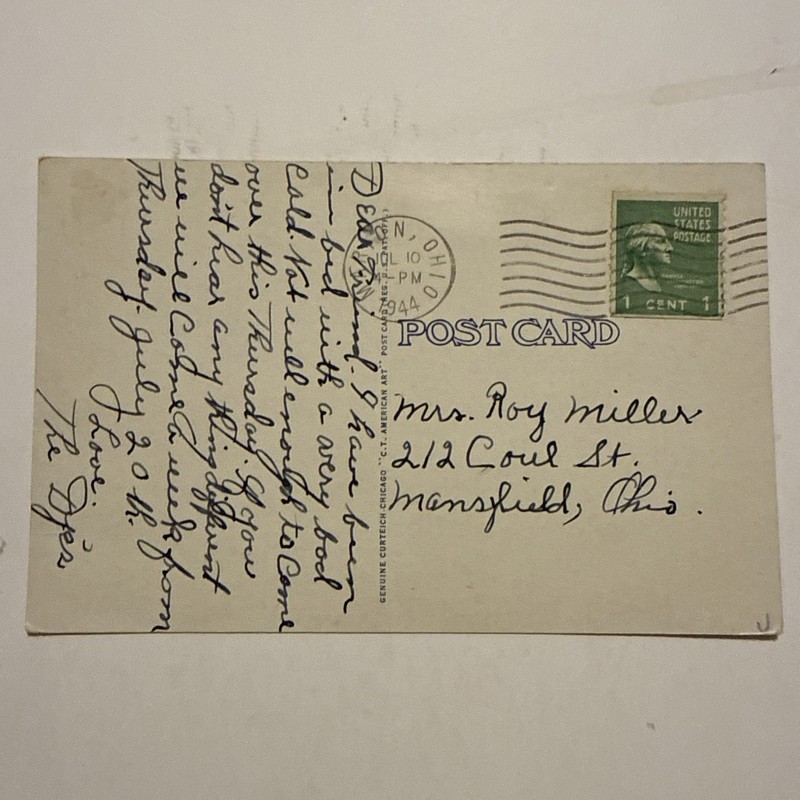 Dear Friend. I have been
in bed with a very bad
Cold. Not well enough to Come
over this Thursday. If you
don't hear any thing different
we will Come a week from
Thursday. July 20 th.
Love.
The Dye's
GENUINE CURTEICH-CHICAGO "C.T. AMERICAN ART" POST CARD (REG. U.S. PAT. OFF.)
N, OHIO
JUL 10
PM
1944
UNITED
STATES
POSTAGE
1 CENT 1
POST CARD
Mrs. Roy Miller
212 Coul St.
Mansfield, Ohio.